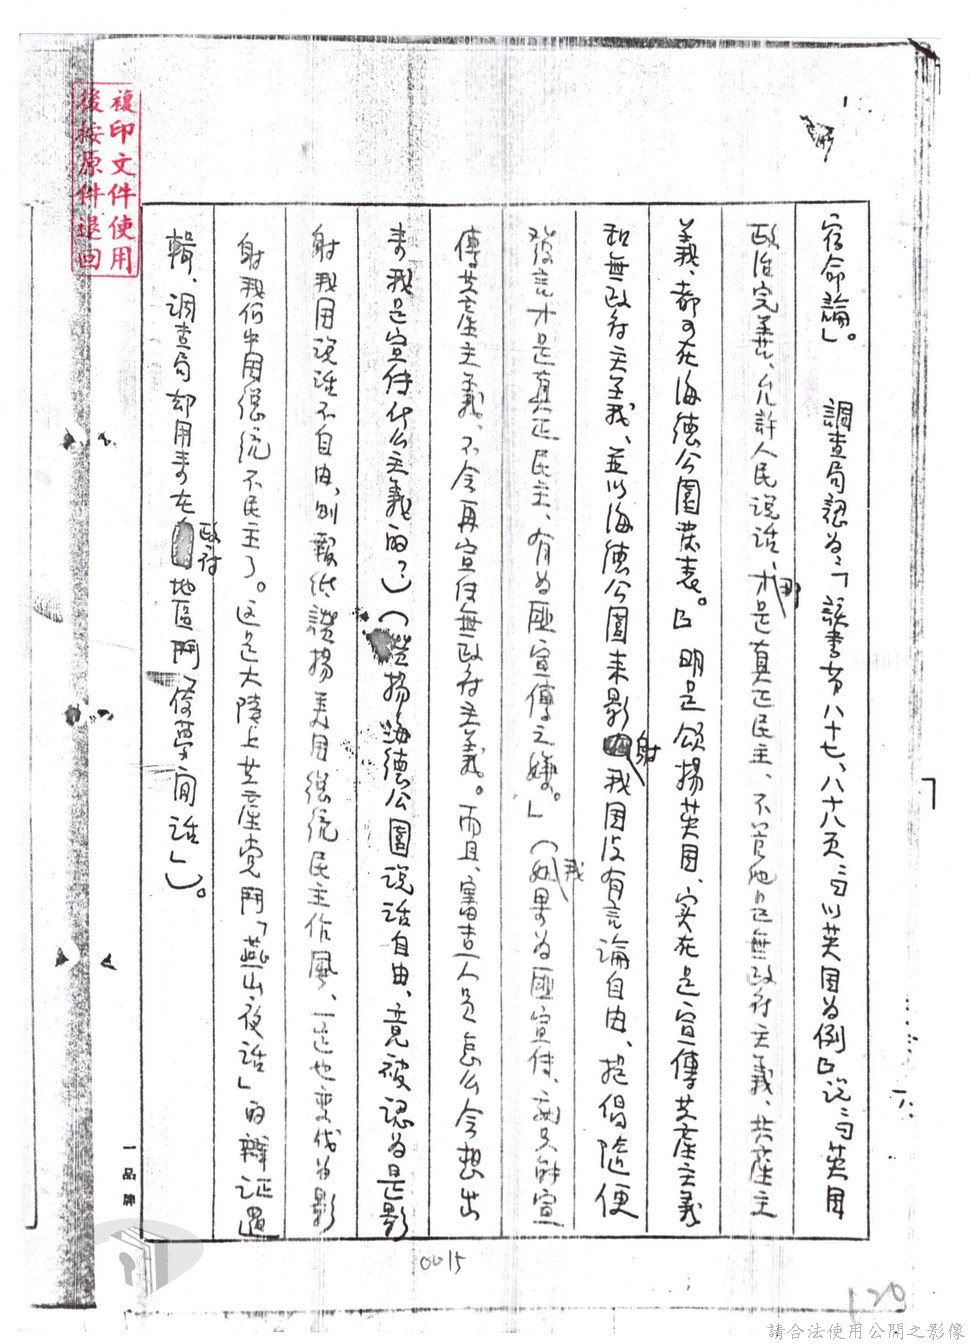 複印文件使用
後按原件退回
宿命論」。 調查局認為：「該書第八十七、八十八頁：『以英国為例』說：『英国
政治完善、允許人民說話、那才是真正民主、不管他是無政府主義、共產主
義、都可在海德公園發表。』明是頌揚英国、实在是宣傳共產主義
和無政府主義、並以海德公園来影射我国没有言論自由、提倡隨便
發言才是真正民主、有為匪宣傳之嫌。」（我如果為匪宣传、只能宣
傳共產主義、不会再宣传無政府主義。而且、審查人员怎么会想出
来我是宣传什么主義的？）（讚揚海德公園说话自由、竟被認為是影
射我国说话不自由、則報纸讚揚美国總统民主作風、一定也變成為影
射我们中国總统不民主了。这是大陸上共產党鬥「燕山夜话」的辯证邏
輯、調查局却用来在政府地區鬥「倚夢閒话」）。
一品牌
0015
129
請合法使用公開之影像